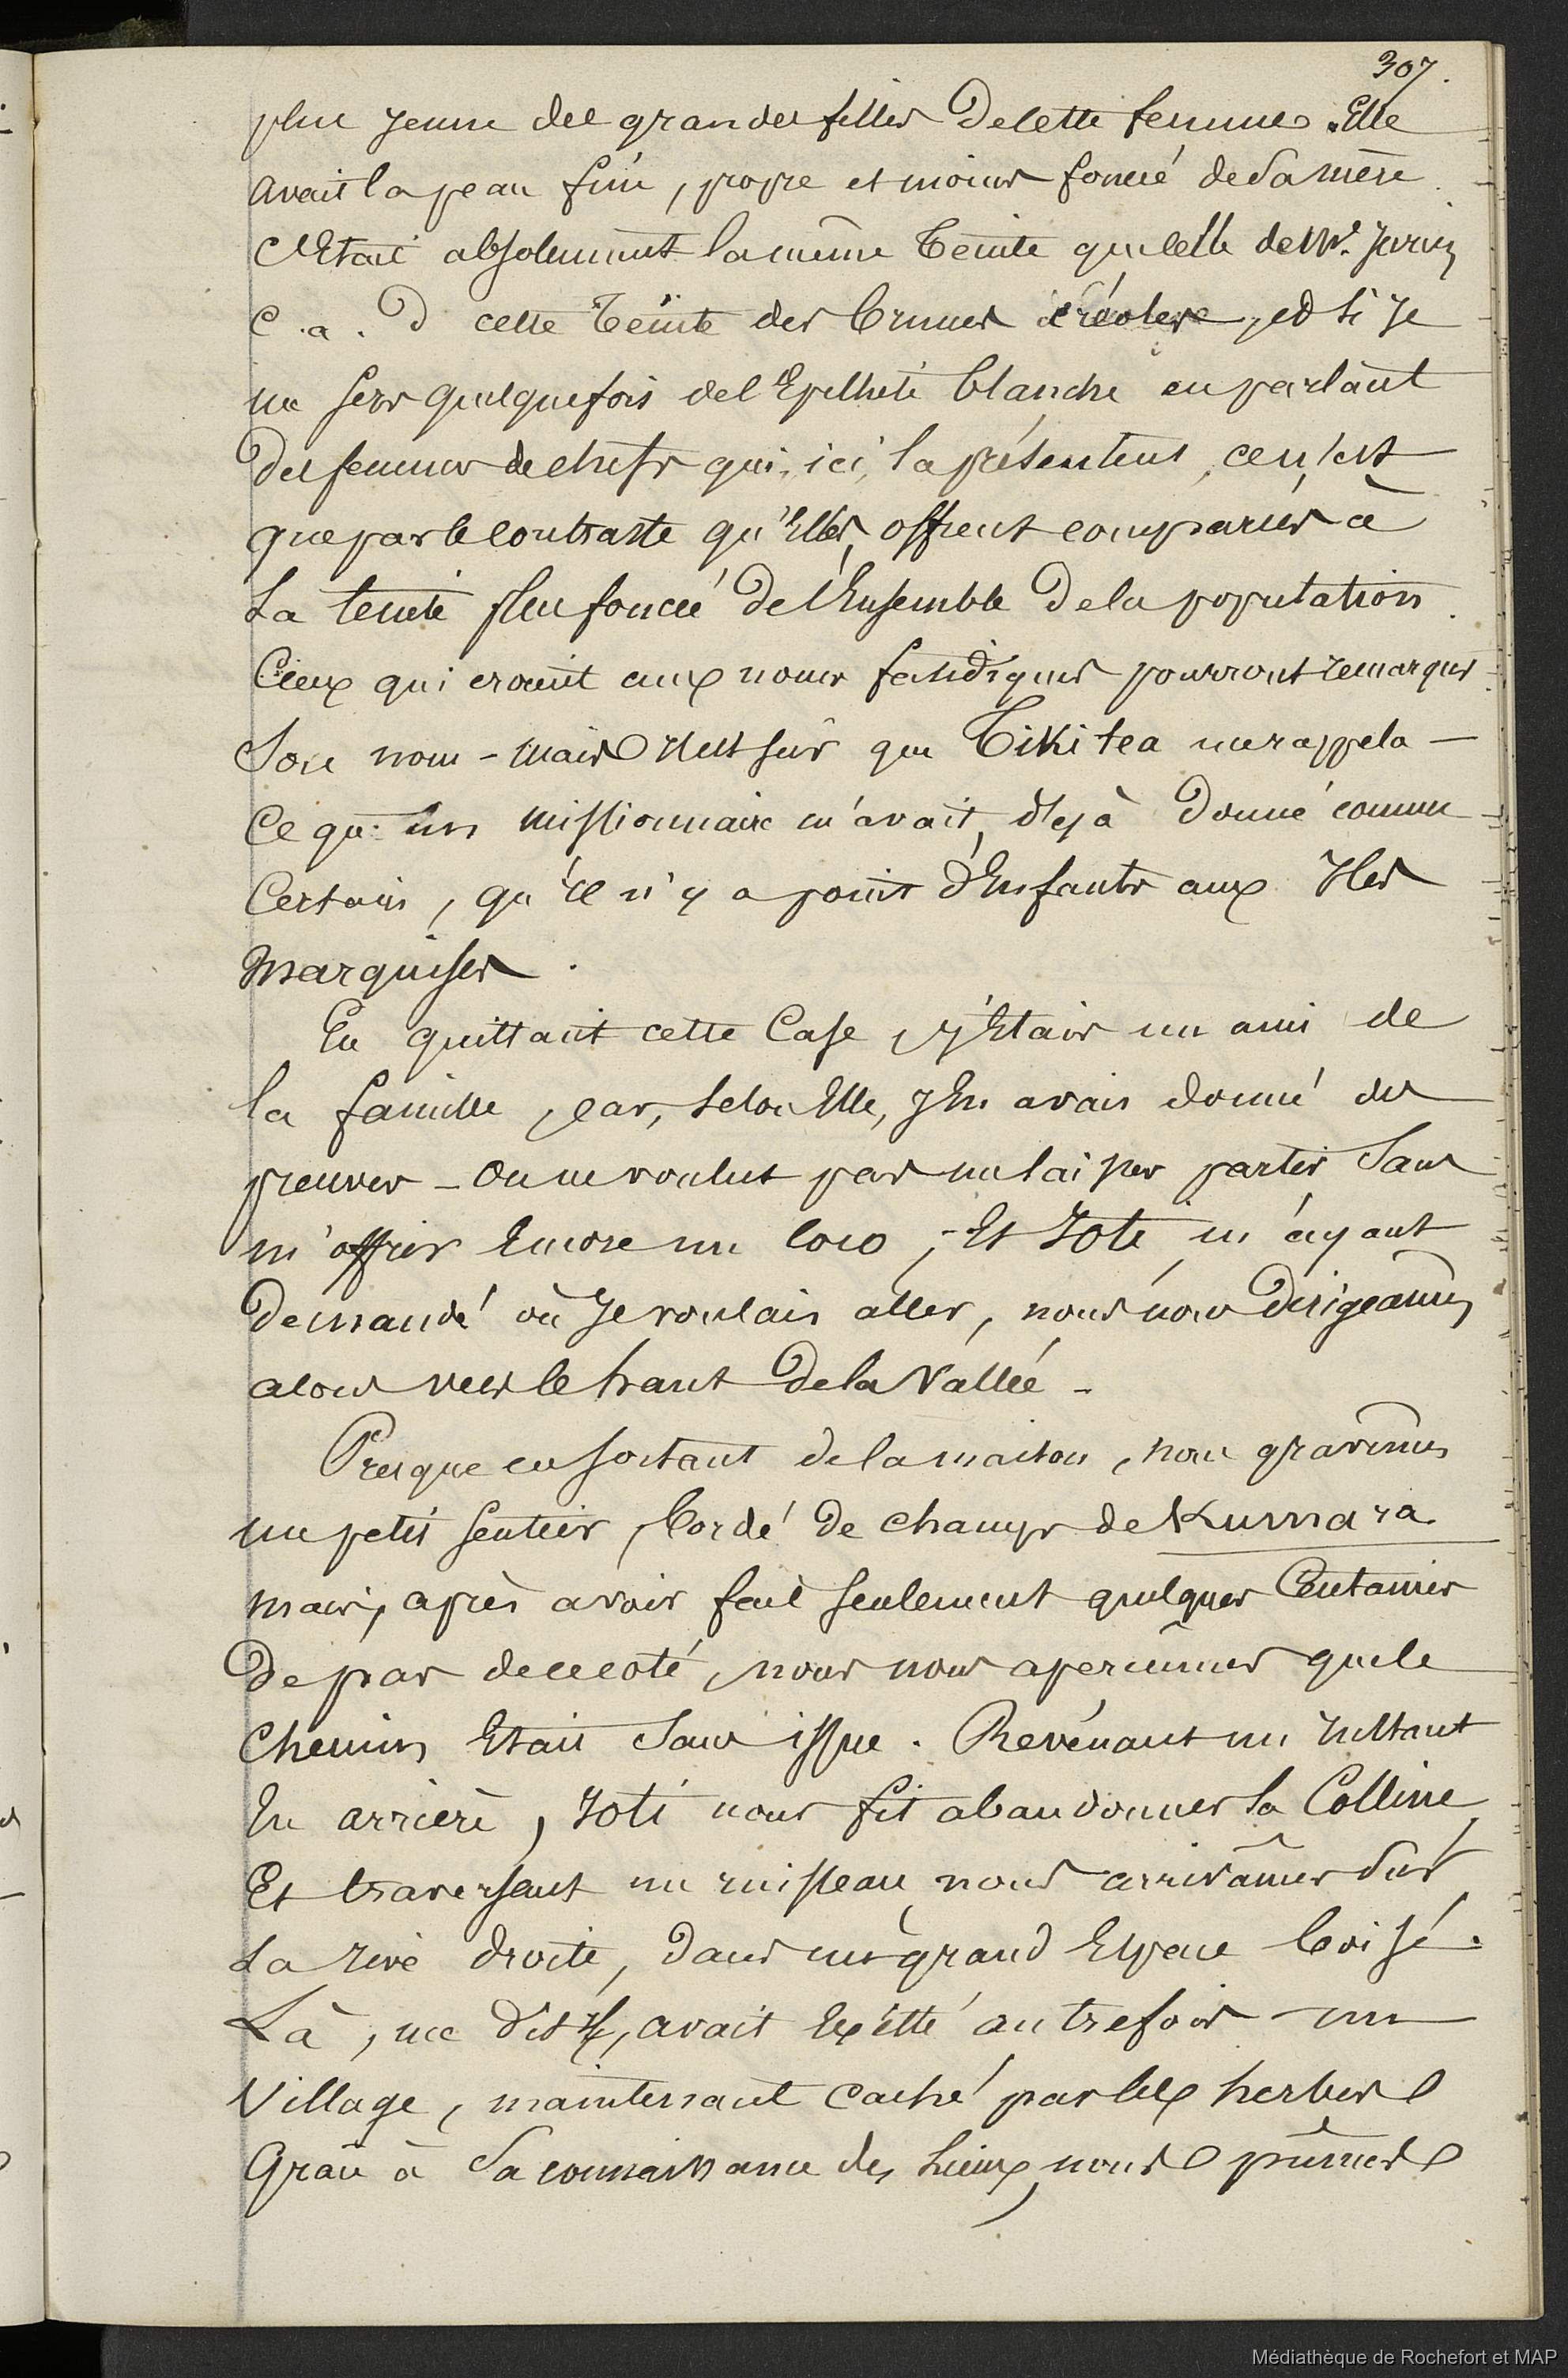 307.
plus jeune des grandes filles de cette femme. Elle
avait la peau fine, propre et moins foncée de sa mère.
C'Etait absolument la même teinte que celle de Mr.
c. a. d cette teinte des brunes créoles, et si je
me sers quelquefois de l'Epithète blanche en parlant
des femmes de chefs qui, ici, la présentent, ce n'est
que par le contraste qu'Elles offrent comparées à
la teinte plus foncée de l'Ensemble de la population.
Ceux qui croient aux noms fatidiques pourront remarquer
son nom - mais il est sûr que Tikitea me rappela -
ce qu'un missionnaire m'avait déjà donné comme
certain, qu'il n'y a point d'Enfants aux Iles
Marquises.
En quittant cette Case, j'Etais un ami de
la famille, car, selon Elle, j'En avais donné des
preuves - on ne voulut pas me laisser partir sans
m'offrir Encore un coco, Et Ioté m'ayant
demandé où Je voulais aller, nous nous dirigeâmes
alors vers le haut de la Vallée -
Presque en sortant de la maison, nous gravîmes
un petit sentier, bordé de champs de Kumara
mais, après avoir fait seulement quelques Centaines
de pas de ce coté, nous nous aperçûmes que le
Chemin Etait sans issue. Revenant un Instant
En arrière, Ioté nous fit abandonner la Colline,
Et traversant un ruisseau, nous arrivâmes sur
la rive droite, dans un grand Espace boisé.
Là, me dit-il, avait Existé autrefois un
Village, maintenant caché par les herbes
Grâce à sa connaissance des lieux, nous pûmes
Médiathèque de Rochefort et MAP